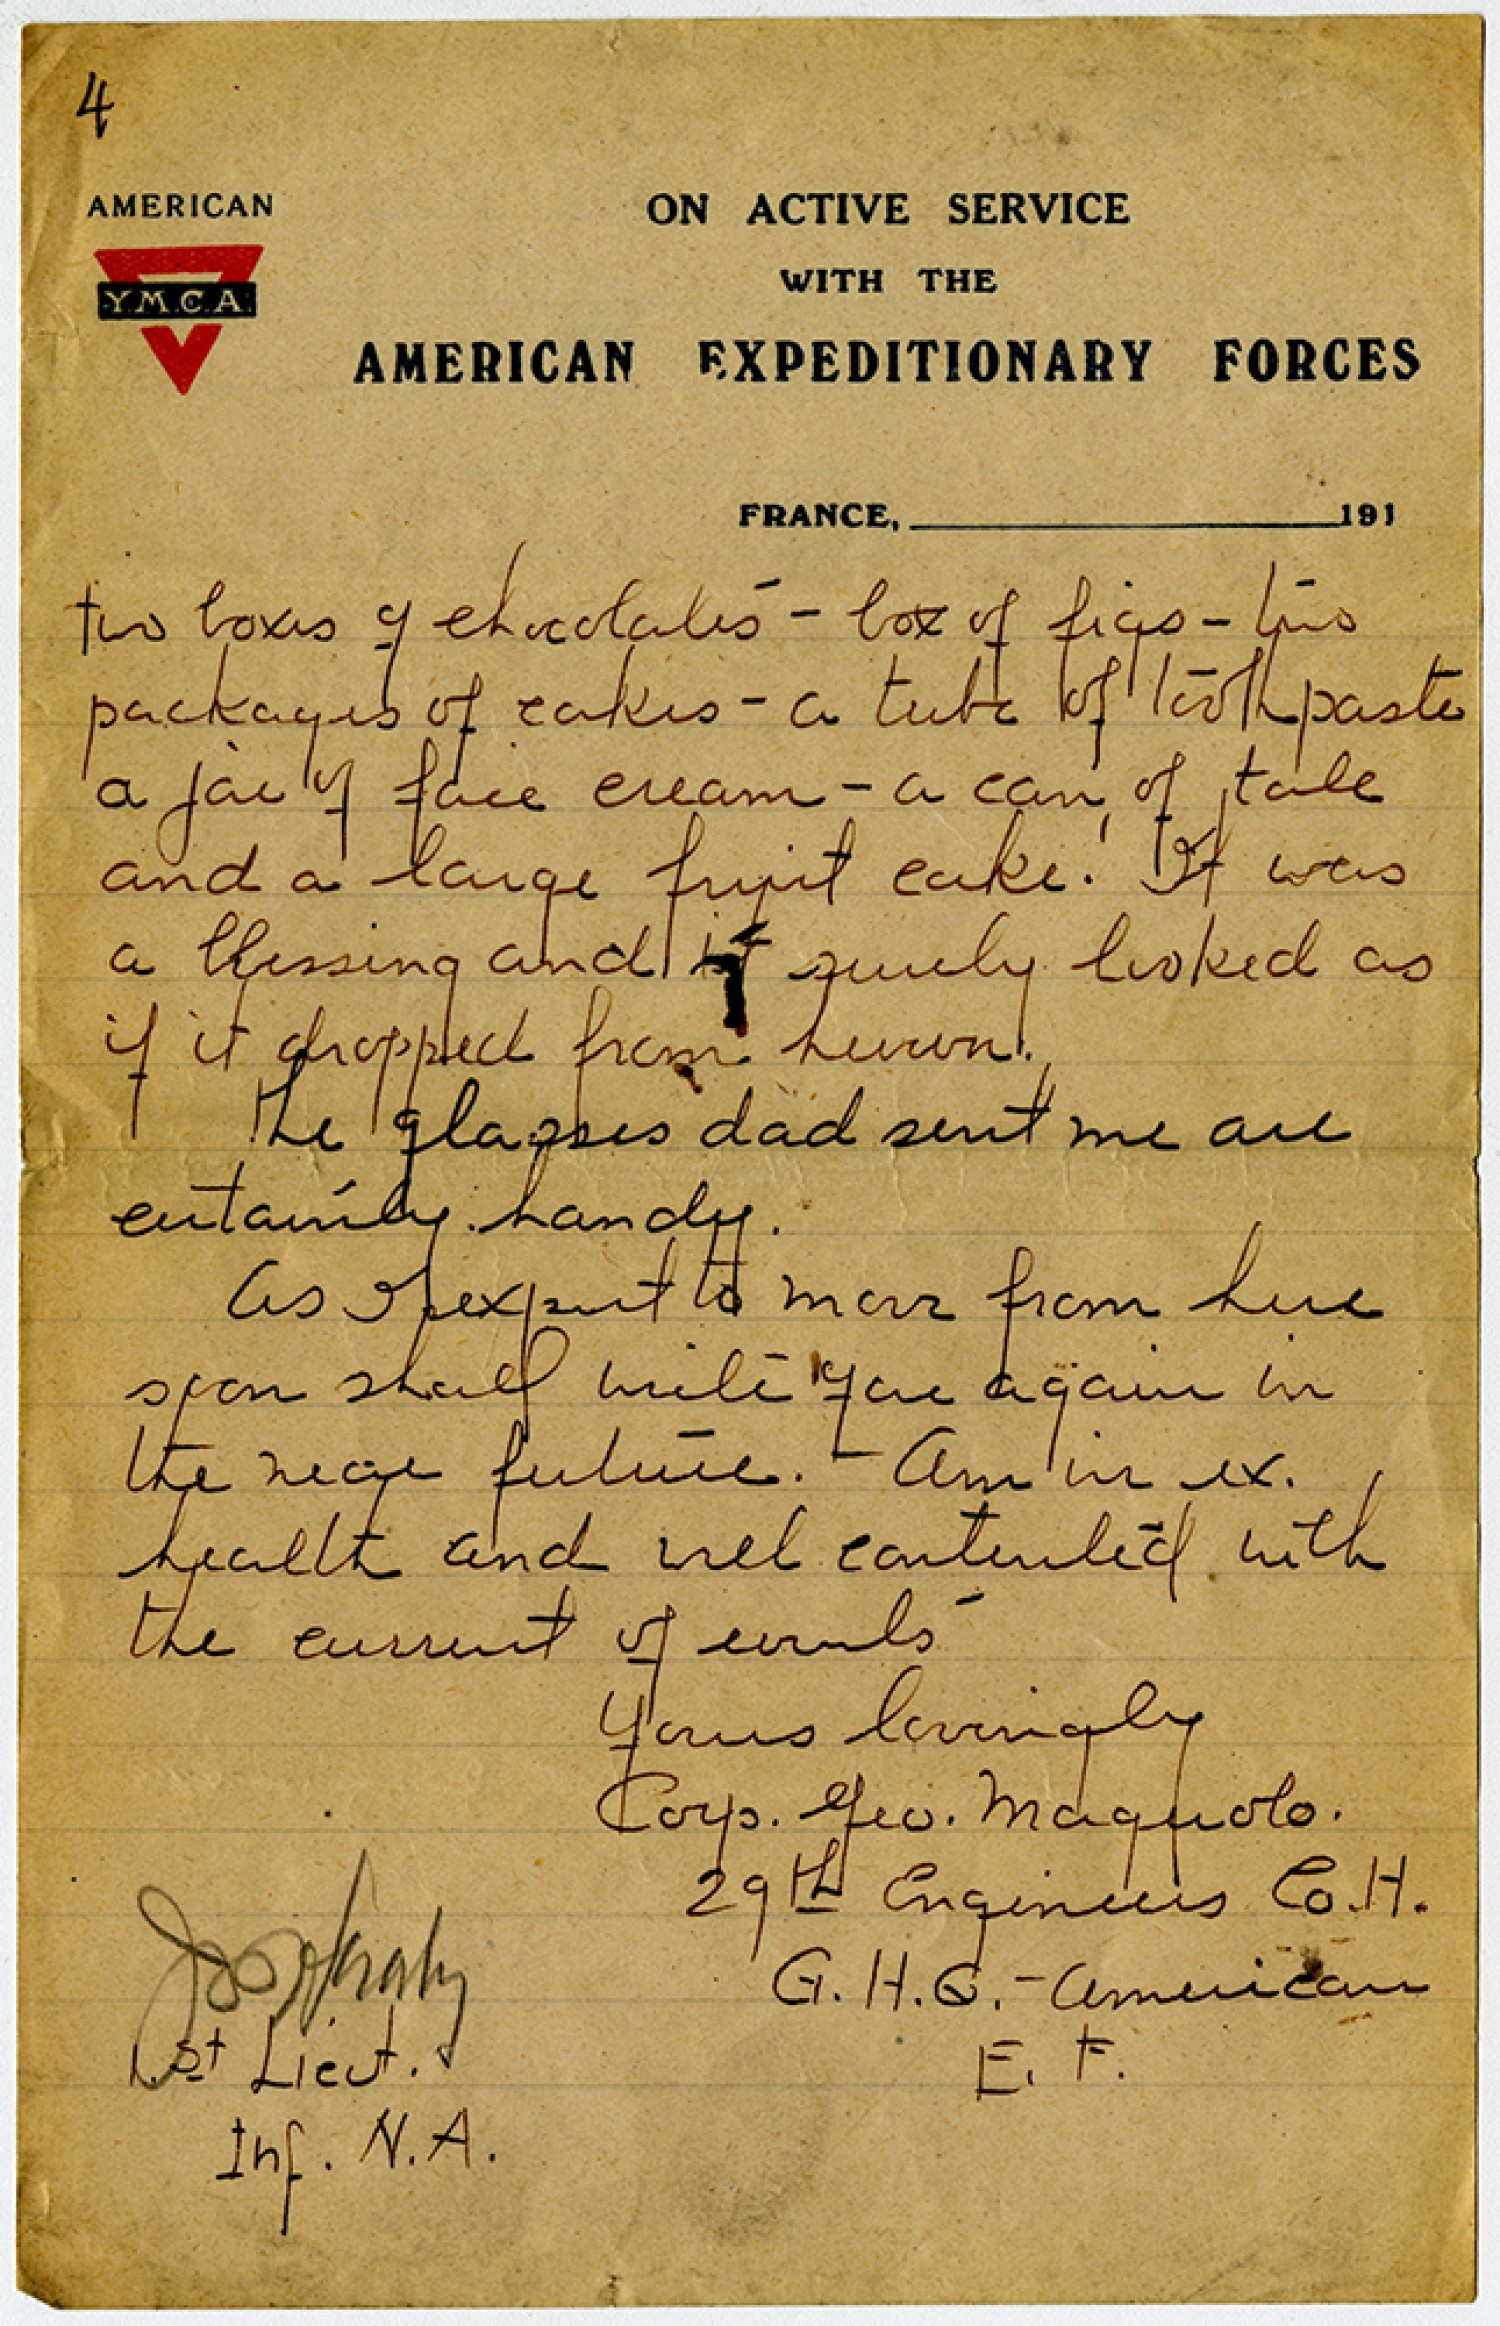 4
AMERICAN
Y.M.C.A.
ON ACTIVE SERVICE
WITH THE
AMERICAN EXPEDITIONARY FORCES
FRANCE, 191
two boxes of chocolates - box of figs - two
packages of cakes - a tube of tooth paste
a jar of face cream - a can of talc
and a large fruit cake. It was
a blessing and it surely looked as
if it dropped from heaven.
The glasses dad sent me are
certainly handy.
As I expect to move from here
soon shall write you again in
the near future. - Am in ex.
health and well contented with
the current of events
Yours lovingly
Corp. Geo. Maguolo.
29th Engineers Co. H.
G. H. Q. - American
E. F.
1st Lieut.
Inf. N.A.